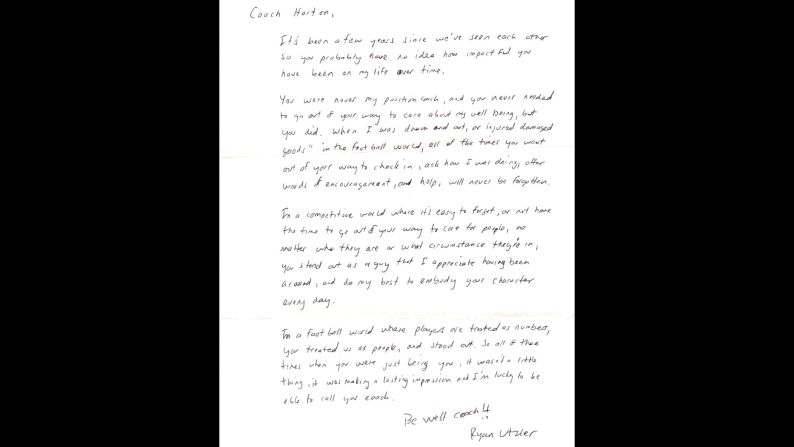 Coach Horton,
It's been a few years since we've seen each other
so you probably have no idea how impactful you
have been on my life over time.
You were never my position coach, and you never needed
to go out of your way to care about my well being, but
you did. When I was down and out, or injured damaged
goods" in the football world, all of the times you went
out of your way to check in, ask how I was doing, offer
words of encouragement, and help, will never be forgotten.
In a competitive world where it's easy to forget, or not have
the time to go out of your way to care for people, no
matter who they are or what circumstance they're in,
you stand out as a guy that I appreciate having been
around, and do my best to embody your character
every day.
In a football world where players are treated as numbers,
you treated us as people, and stood out. So all of those
times when you were just being you, it wasn't a little
thing, it was making a lasting impression and I'm lucky to be
able to call you coach.
Be well coach!!
Ryan Utzler